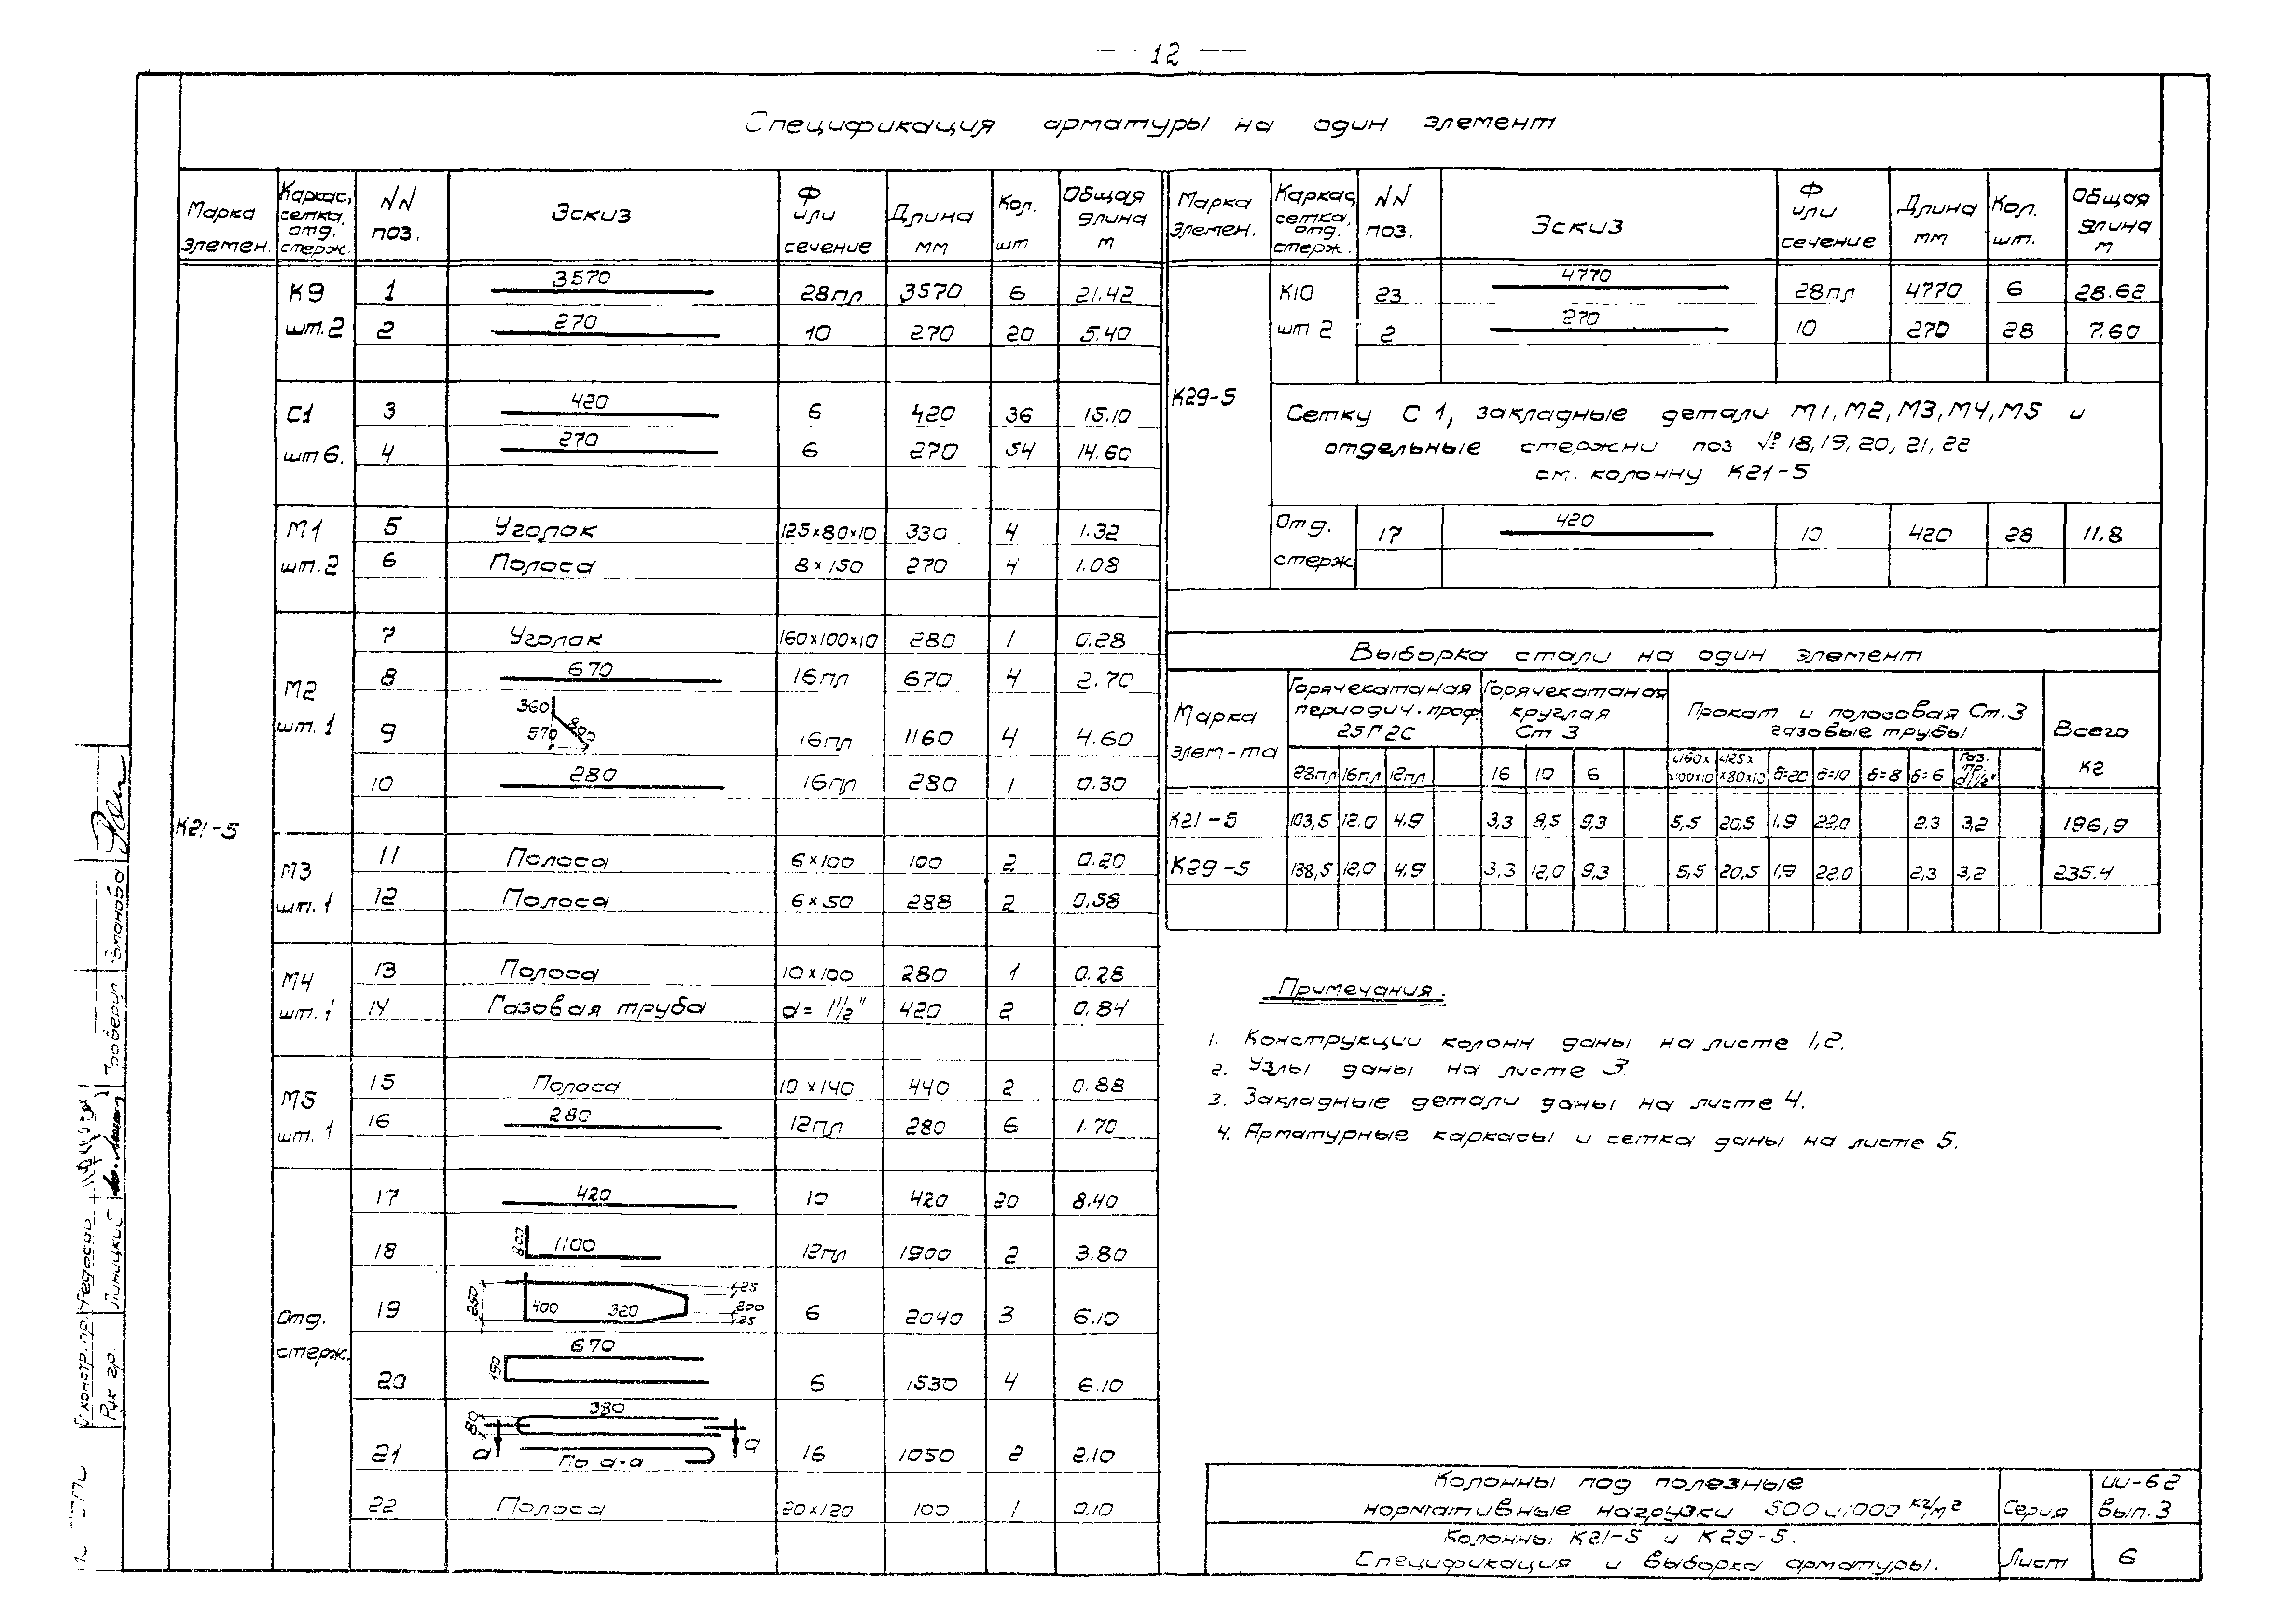 — 12 —
Спецификация арматуры на один элемент
Марка элемен. Каркас, сетка, отд. стерж. NN поз. Эскиз Ф или сечение Длина мм Кол. шт Общая длина м
К21-5
К9 шт.2 1 3570 28пл 3570 6 21.42
2 270 10 270 20 5.40
С1 шт 6. 3 420 6 420 36 15.10
4 270 6 270 54 14.60
М1 шт.2 5 Уголок 125×80×10 330 4 1.32
6 Полоса 8×150 270 4 1.08
М2 шт.1 7 Уголок 160×100×10 280 1 0.28
8 670 16пл 670 4 2.70
9 360 570 800 16пл 1160 4 4.60
10 280 16пл 280 1 0.30
М3 шт.1 11 Полоса 6×100 100 2 0.20
12 Полоса 6×50 288 2 0.58
М4 шт.1 13 Полоса 10×100 280 1 0.28
14 Газовая труба d= 1½" 420 2 0.84
М5 шт.1 15 Полоса 10×140 440 2 0.88
16 280 12пл 280 6 1.70
Отд. стерж. 17 420 10 420 20 8.40
18 800 1100 12пл 1900 2 3.80
19 250 400 320 125 200 125 6 2040 3 6.10
20 190 670 6 1530 4 6.10
21 80 380 а а По а-а 16 1050 2 2.10
22 Полоса 20×120 100 1 0.10
Марка элемен. Каркас, сетка, отд. стерж. NN поз. Эскиз Ф или сечение Длина мм Кол. шт. Общая длина м
К29-5
К10 шт 2 23 4770 28пл 4770 6 28.62
2 270 10 270 28 7.60
Сетку С 1, закладные детали М1, М2, М3, М4, М5 и
отдельные стержни поз № 18, 19, 20, 21, 22
см. колонну К21-5
Отд. стерж. 17 420 10 420 28 11.8
Выборка стали на один элемент
Марка элем-та Горячекатаная периодич. проф. 25Г2С Горячекатаная круглая Ст 3 Прокат и полосовая Ст.3 газовые трубы Всего кг
28пл 16пл 12пл 16 10 6 L160×100×10 L125×80×10 δ=20 δ=10 δ=8 δ=6 Газ. тр. d1½"
К21-5 103,5 12.0 4.9 3,3 8,5 9,3 5,5 20,5 1,9 22,0 2,3 3,2 196,9
К29-5 138,5 12,0 4.9 3,3 12,0 9,3 5,5 20,5 1,9 22.0 2,3 3,2 235.4
Примечания.
1. Конструкции колонн даны на листе 1,2.
2. Узлы даны на листе 3.
3. Закладные детали даны на листе 4.
4. Арматурные каркасы и сетка даны на листе 5.
Колонны под полезные
нормативные нагрузки 500 и 1000 кг/м2
Серия ИИ-62 Вып.3
Колонны К21-5 и К29-5.
Спецификация и выборка арматуры.
Лист 6
Рук гр. Линицкий